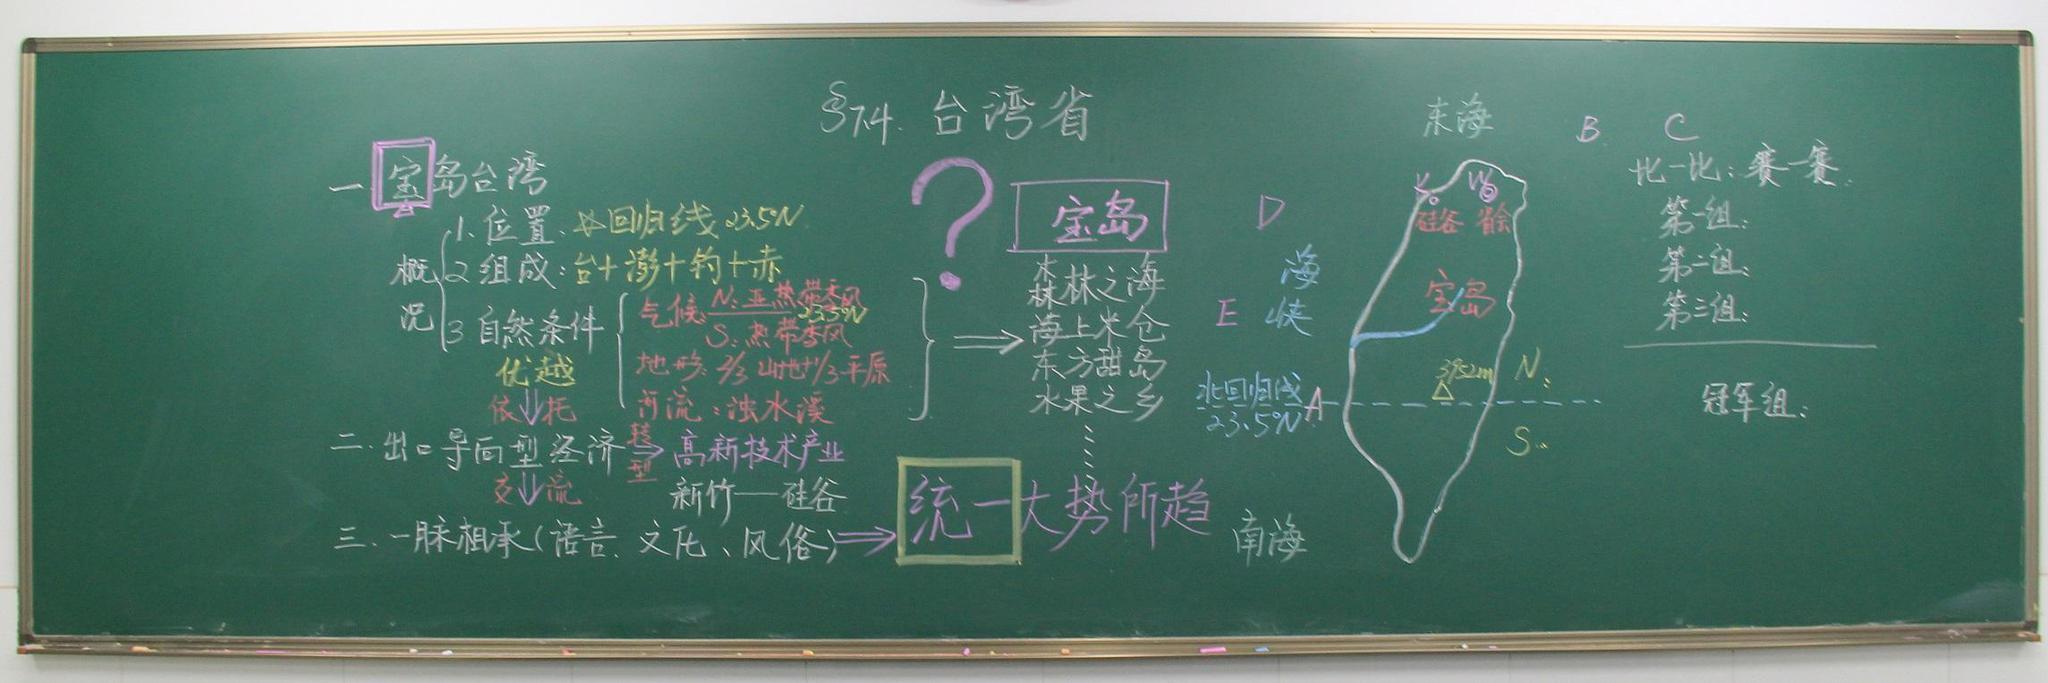 §7.4. 台湾省
一 宝岛台湾
概况
1. 位置: 北回归线 23.5°N
2 组成: 台+澎+钓+赤
3 自然条件
优越
气候: N: 亚热带季风
23.5°N
S: 热带季风
地形: 2/3 山地+1/3 平原
河流: 浊水溪
依托
二. 出口导向型经济
转型
高新技术产业
新竹——硅谷
交流
三. 一脉相承(语言、文化、风俗)
统一大势所趋
?
宝岛
森林之海
海上米仓
东方甜岛
水果之乡
东海
B C
D
海峡
E
硅谷 省会
宝岛
3952m
北回归线
23.5°N
A
N:
S:
南海
比一比: 赛一赛:
第一组:
第二组:
第三组:
冠军组: